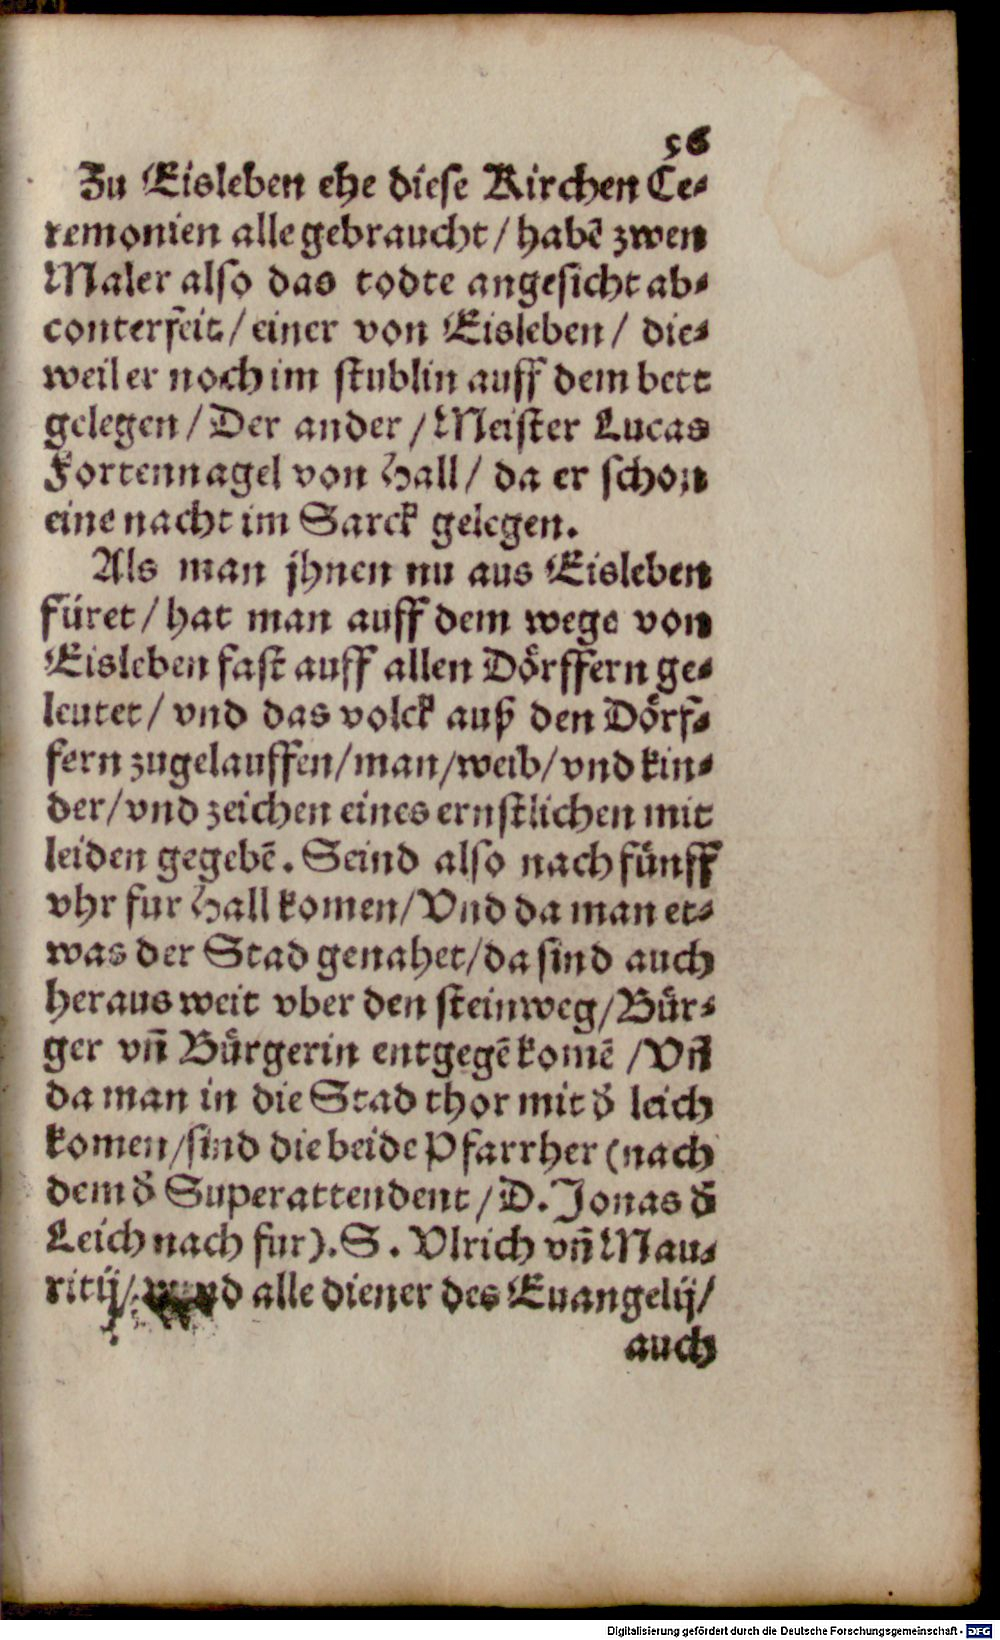 56
Zu Eisleben ehe diese Kirchen Ce⸗
remonien alle gebraucht / habē zwen
Maler also das todte angesicht ab⸗
conterfeit / einer von Eisleben / die⸗
weil er noch im stublin auff dem bett
gelegen / Der ander / Meister Lucas
Fortennagel von Hall / da er schon
eine nacht im Sarck gelegen.
Als man jhnen nu aus Eisleben
füret / hat man auff dem wege von
Eisleben fast auff allen Dörffern ge⸗
leutet / vnd das volck auß den Dörf⸗
fern zugelauffen / man / weib / vnd kin⸗
der / vnd zeichen eines ernstlichen mit
leiden gegebē. Seind also nach fünff
vhr fur Hall komen / Vnd da man et⸗
was der Stad genahet / da sind auch
heraus weit vber den steinweg / Bür⸗
ger vñ Bürgerin entgegē komē / Vñ
da man in die Stad thor mit d̄ leich
komen / sind die beide Pfarrher (nach
dem d̄ Superattendent / D. Jonas d̄
Leich nach fur). S. Vlrich vñ Mau⸗
ritij / vnnd alle diener des Euangelij /
auch
Digitalisierung gefördert durch die Deutsche Forschungsgemeinschaft - DFG